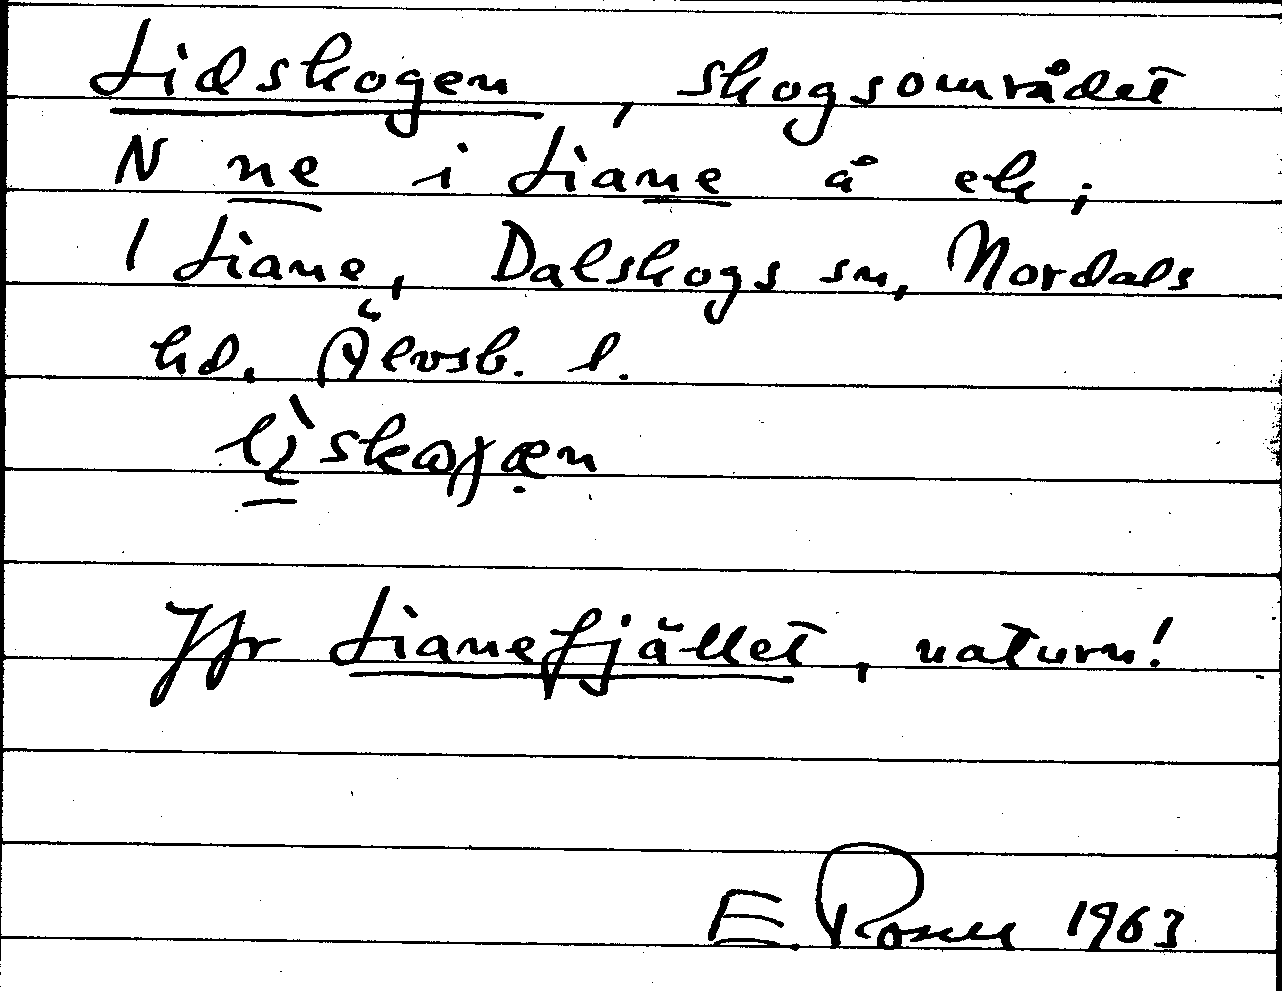 Lidskogen, skogsområdet
N ne i Liane å ek;
1 Liane, Dalskogs sn, Nordals
hd. Älvsb. l.
Jfr Lianefjället, naturn!
E. Rosell 1963